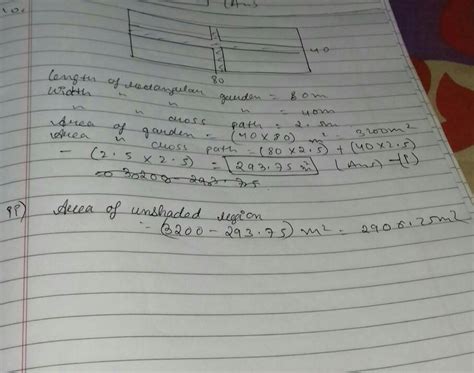 10.
(Ans
40
80
Length of rectangular garden = 80m
Width " " " = 40m
" " cross path = 2.5m
Area of garden = (40 × 80) m² = 3200m²
Area " cross path = (80 × 2.5) + (40 × 2.5)
- (2.5 × 2.5) = 293.75m² (Ans) - (i)
3200 - 293.75
ii) Area of unshaded region
= (3200 - 293.75) m² = 2906.25m²